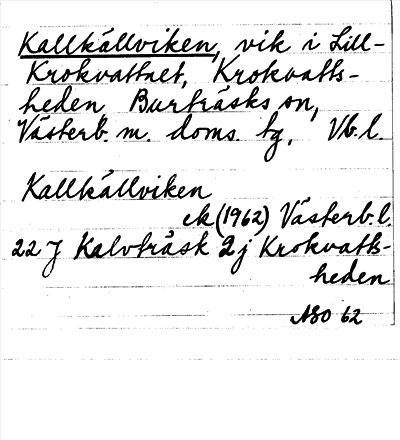 Kallkällviken, vik i Lill-
Krokvattnet, Krokvatts-
heden, Burträsks sn,
Västerb. m. doms. tg, Vb. l.
Kallkällviken
ek (1962) Västerb. l.
22 J Kalvträsk 2j Krokvatts-
heden
ASO 62